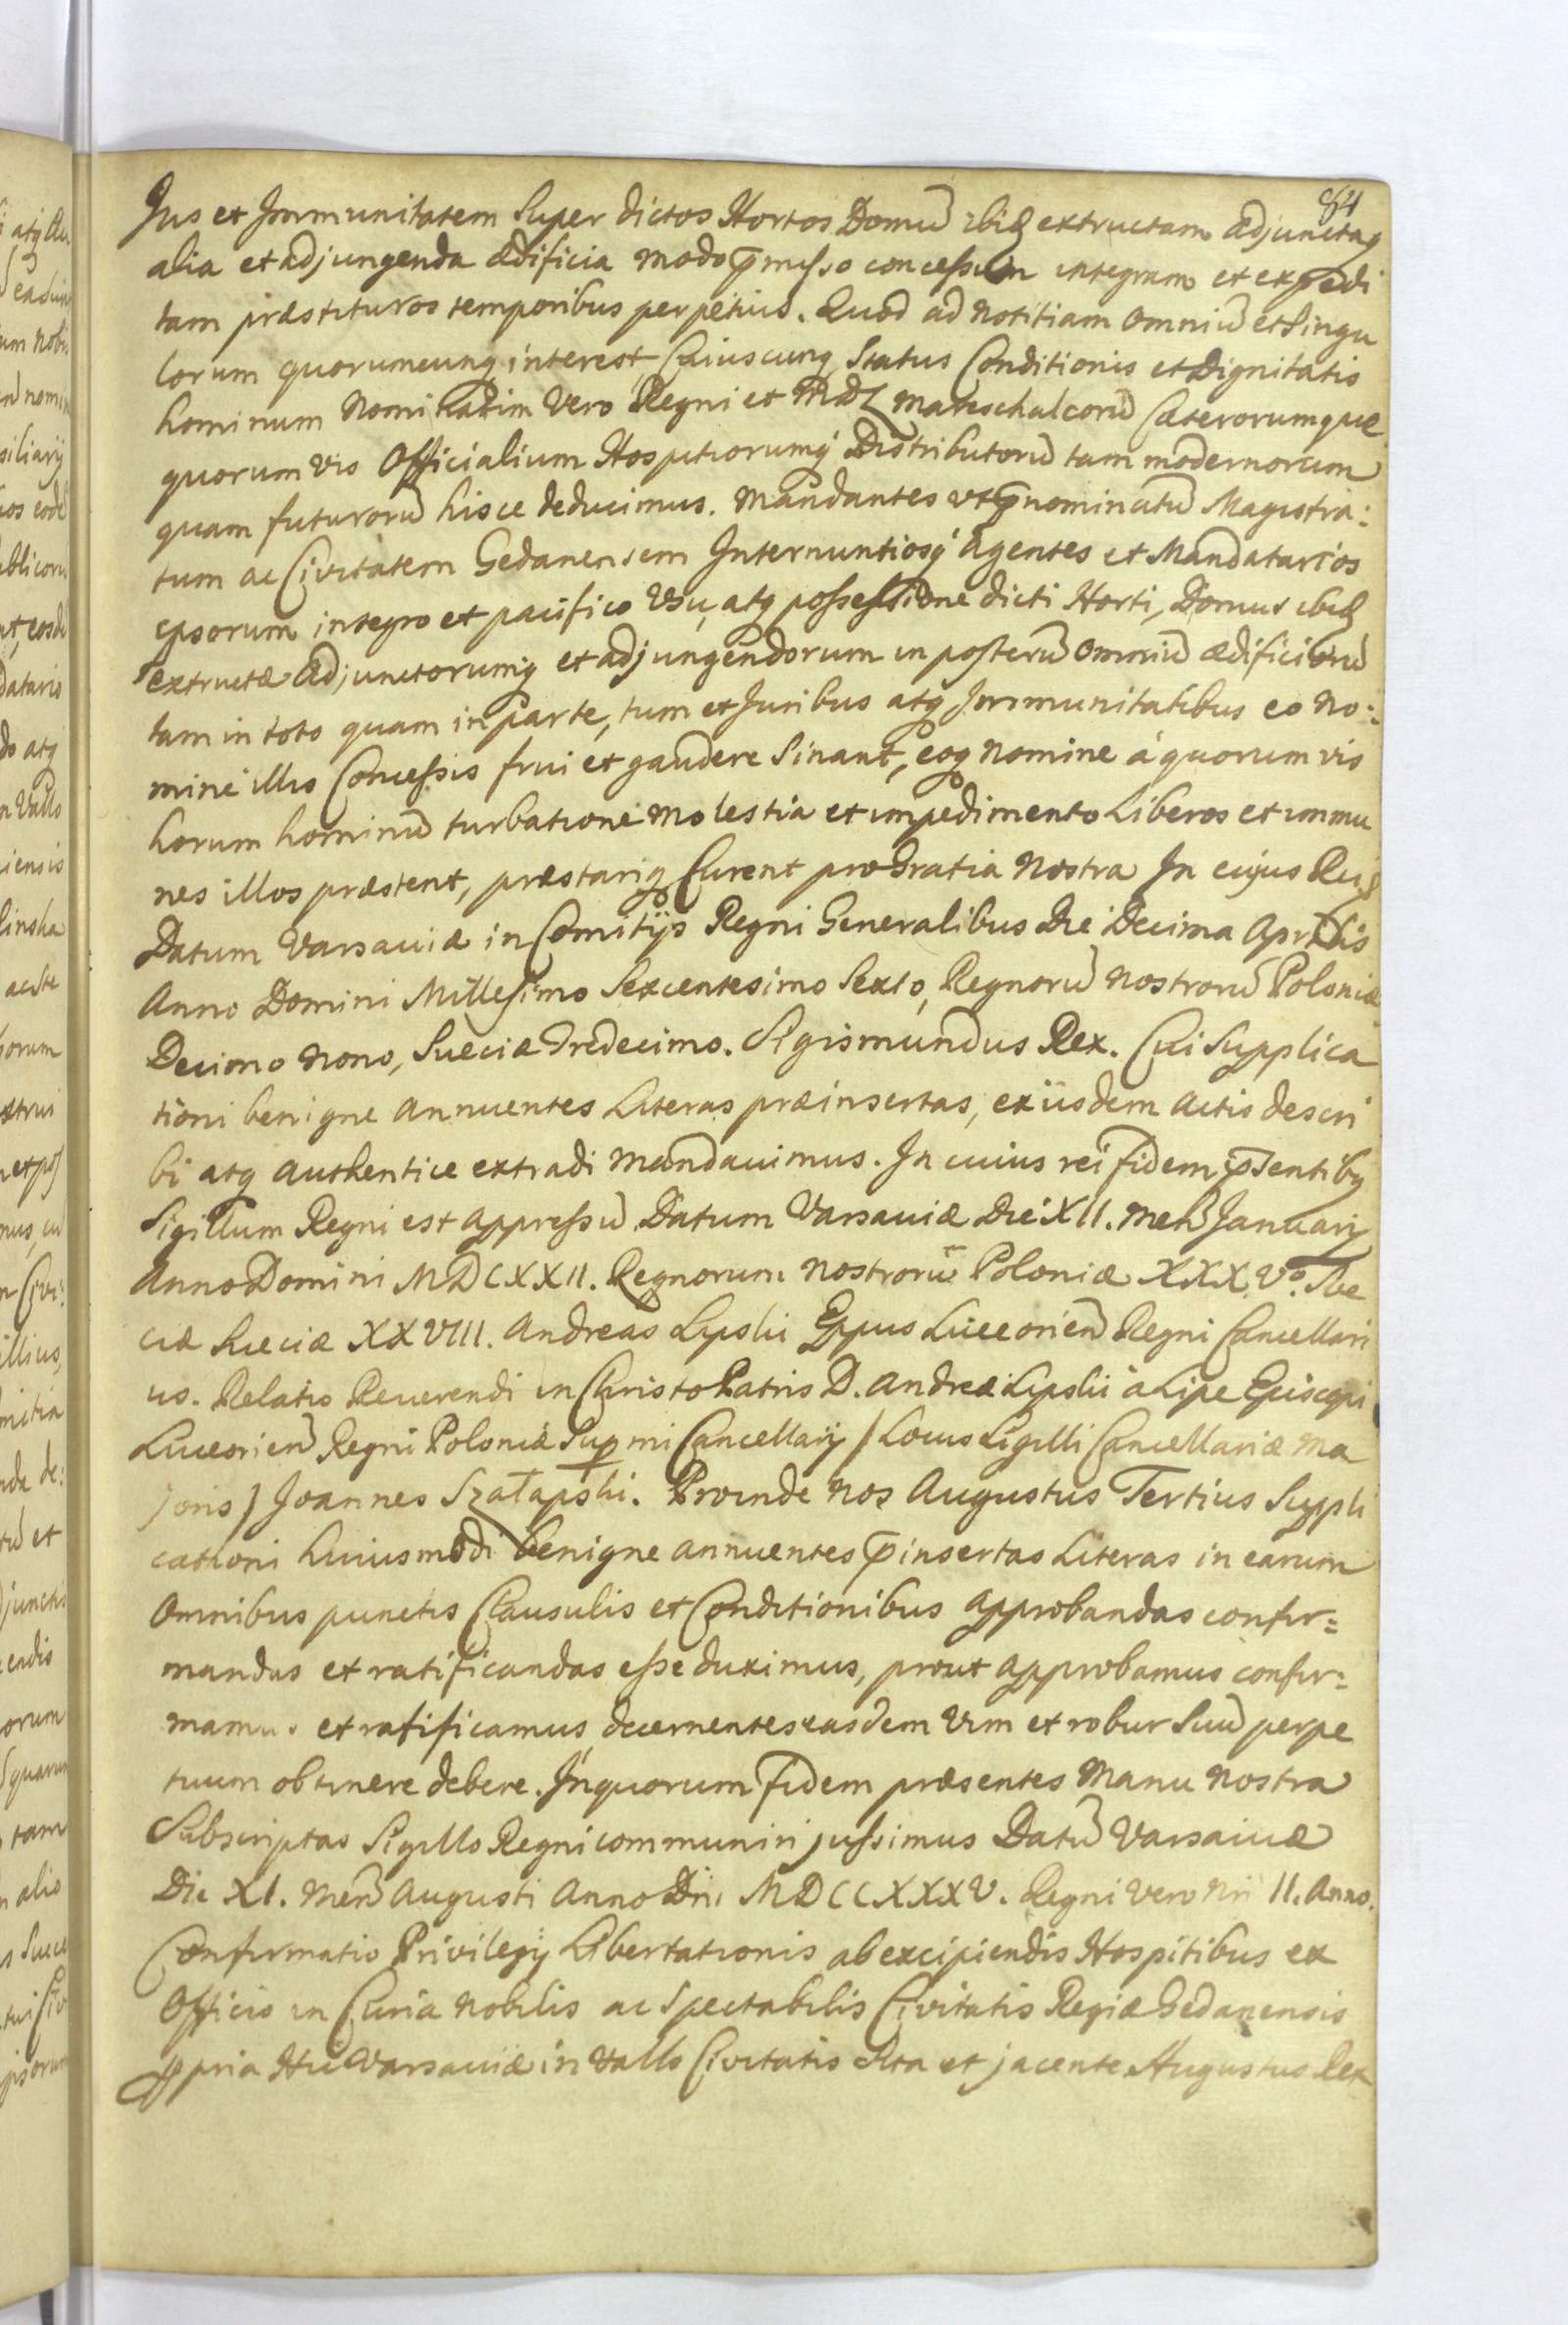 84
Jus et Immunitatem Super dictos Hortos Domũ ibiq̃ extructam adjunctaq̃
alia et adjungenda ædificia modo p̃misso concessum integram et expedi
tam præstituros temporibus perpetuis. Quod ad notitiam omniũ et Singu
lorum quorumcunq̃ interest, Cuiuscunq̃ Status Conditionis et Dignitatis
hominum Nominatim Vero Regni et MDL Mareschalcorũ Cæterorumque
quorumvis Officialium Hospitiorumq̃ Distributorũ tam modernorum
quam futurorũ hisce deducimus. Mandantes ut p̃nominatũ Magistra:
tum ac Civitatem Gedanensem Internuntiosq̃ Agentes et Mandatarios
ipsorum integro et pacifico Usu, atq̃ possessione dicti Horti, Domus ibiq̃
extructæ adjunctorumq̃ et adjungendorum in posterũ omniũ ædificiorũ
tam in toto quam in parte, tum et Juribus atq̃ Immunitatibus eo No:
mine illis Concessis frui et gaudere Sinant, eoq̃ nomine à quorumvis
horum hominũ turbatione molestia et impedimento Liberos et immu
nes illos præstent, præstariq̃ Curent pro Gratia Nostra In cujus Rei
Datum Varsaviæ in Comitijs Regni Generalibus Die Decima Aprilis
Anno Domini Millesimo Sexcentesimo Sexto, Regnorũ Nostrorũ Poloniæ
Decimo Nono, Sueciæ Tredecimo. Sigismundus Rex. Cui Supplica
tioni benigne annuentes Literas præinsertas, ex iisdem Actis descri
bi atq̃ authentice extradi mandavimus. In cuius rei fidem p̃sentibq
Sigillum Regni est appressũ Datum Varsaviæ Die XII. Mens̃ Januarij
Anno Domini MDCXXII. Regnorum Nostrorũ Poloniæ XXXVᵒ. Sue
ciæ Sueciæ XXVIII. Andreas Lipski Eppus Luceorien̄ Regni Cancellari
us. Relatio Reverendi in Christo Patris D. Andreæ Lipski à Lipe Episcopi
Luceorien̄ Regni Poloniæ Supmi Cancellarij / Locus Sigilli Cancellariæ Ma
joris / Joannes Szałapski. Proinde Nos Augustus Tertius Suppli
cationi huiusmodi benigne annuentes p̃insertas Literas in earum
Omnibus punctis Clausulis et Conditionibus approbandas confir=
mandas et ratificandas esse duximus, prout approbamus confir=
mamus et ratificamus decernentes easdem Vim et robur Suũ perpe
tuum obtinere debere. In quorum fidem præsentes Manu Nostra
Subscriptas Sigillo Regni communiri jussimus Datũ Varsaviæ
Die XI. Mens̃ Augusti Anno Dni MDCCXXXV. Regni Vero Nri II. Anno.
Confirmatio Privilegij Libertationis ab excipiendis Hospitibus ex
Officio in Curia Nobilis ac Spectabilis Civitatis Regiæ Gedanensis
ppria Hic Varsaviæ in Vallo Civitatis Sita et jacente Augustus Rex